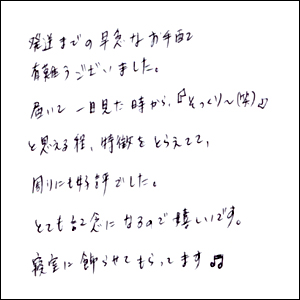 発送までの早急なお手配
有難うございました。
届いて一目見た時から、『そっくり〜(笑)♪
と思える程、特徴をとらえてて、
周りにも好評でした。
とても記念になるので嬉しいです。
寝室に飾らせてもらってます♫